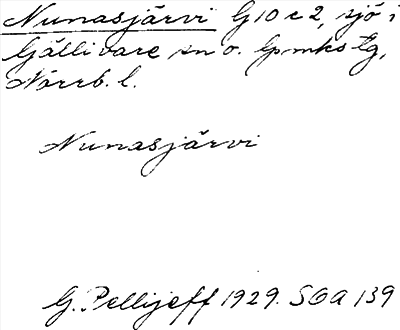 Nunasjärvi G10c2, sjö i
Gällivare sn o. lpmks tg,
Norrb. l.
Nunasjärvi
G. Pellijeff 1929. SOA 139